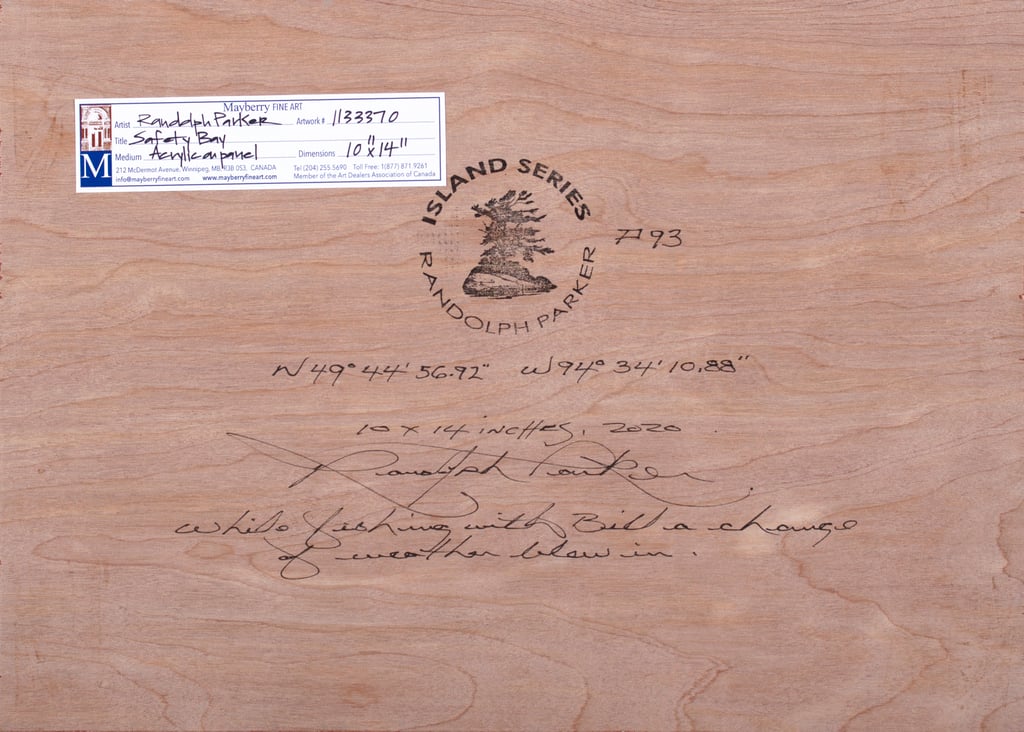 Mayberry FINE ART
Artist Randolph Parker Artwork # 1133370
Title Safety Bay
Medium Acrylic on panel Dimensions 10" x 14"
212 McDermot Avenue, Winnipeg, MB, R3B 0S3, CANADA Tel (204) 255.5690 Toll Free: 1(877) 871.9261
info@mayberryfineart.com www.mayberryfineart.com Member of the Art Dealers Association of Canada
M
ISLAND SERIES
RANDOLPH PARKER
93
N 49° 44' 56.92" W 94° 34' 10.88"
10 x 14 inches, 2020
Randolph Parker
While fishing with Bill a change
of weather blew in.